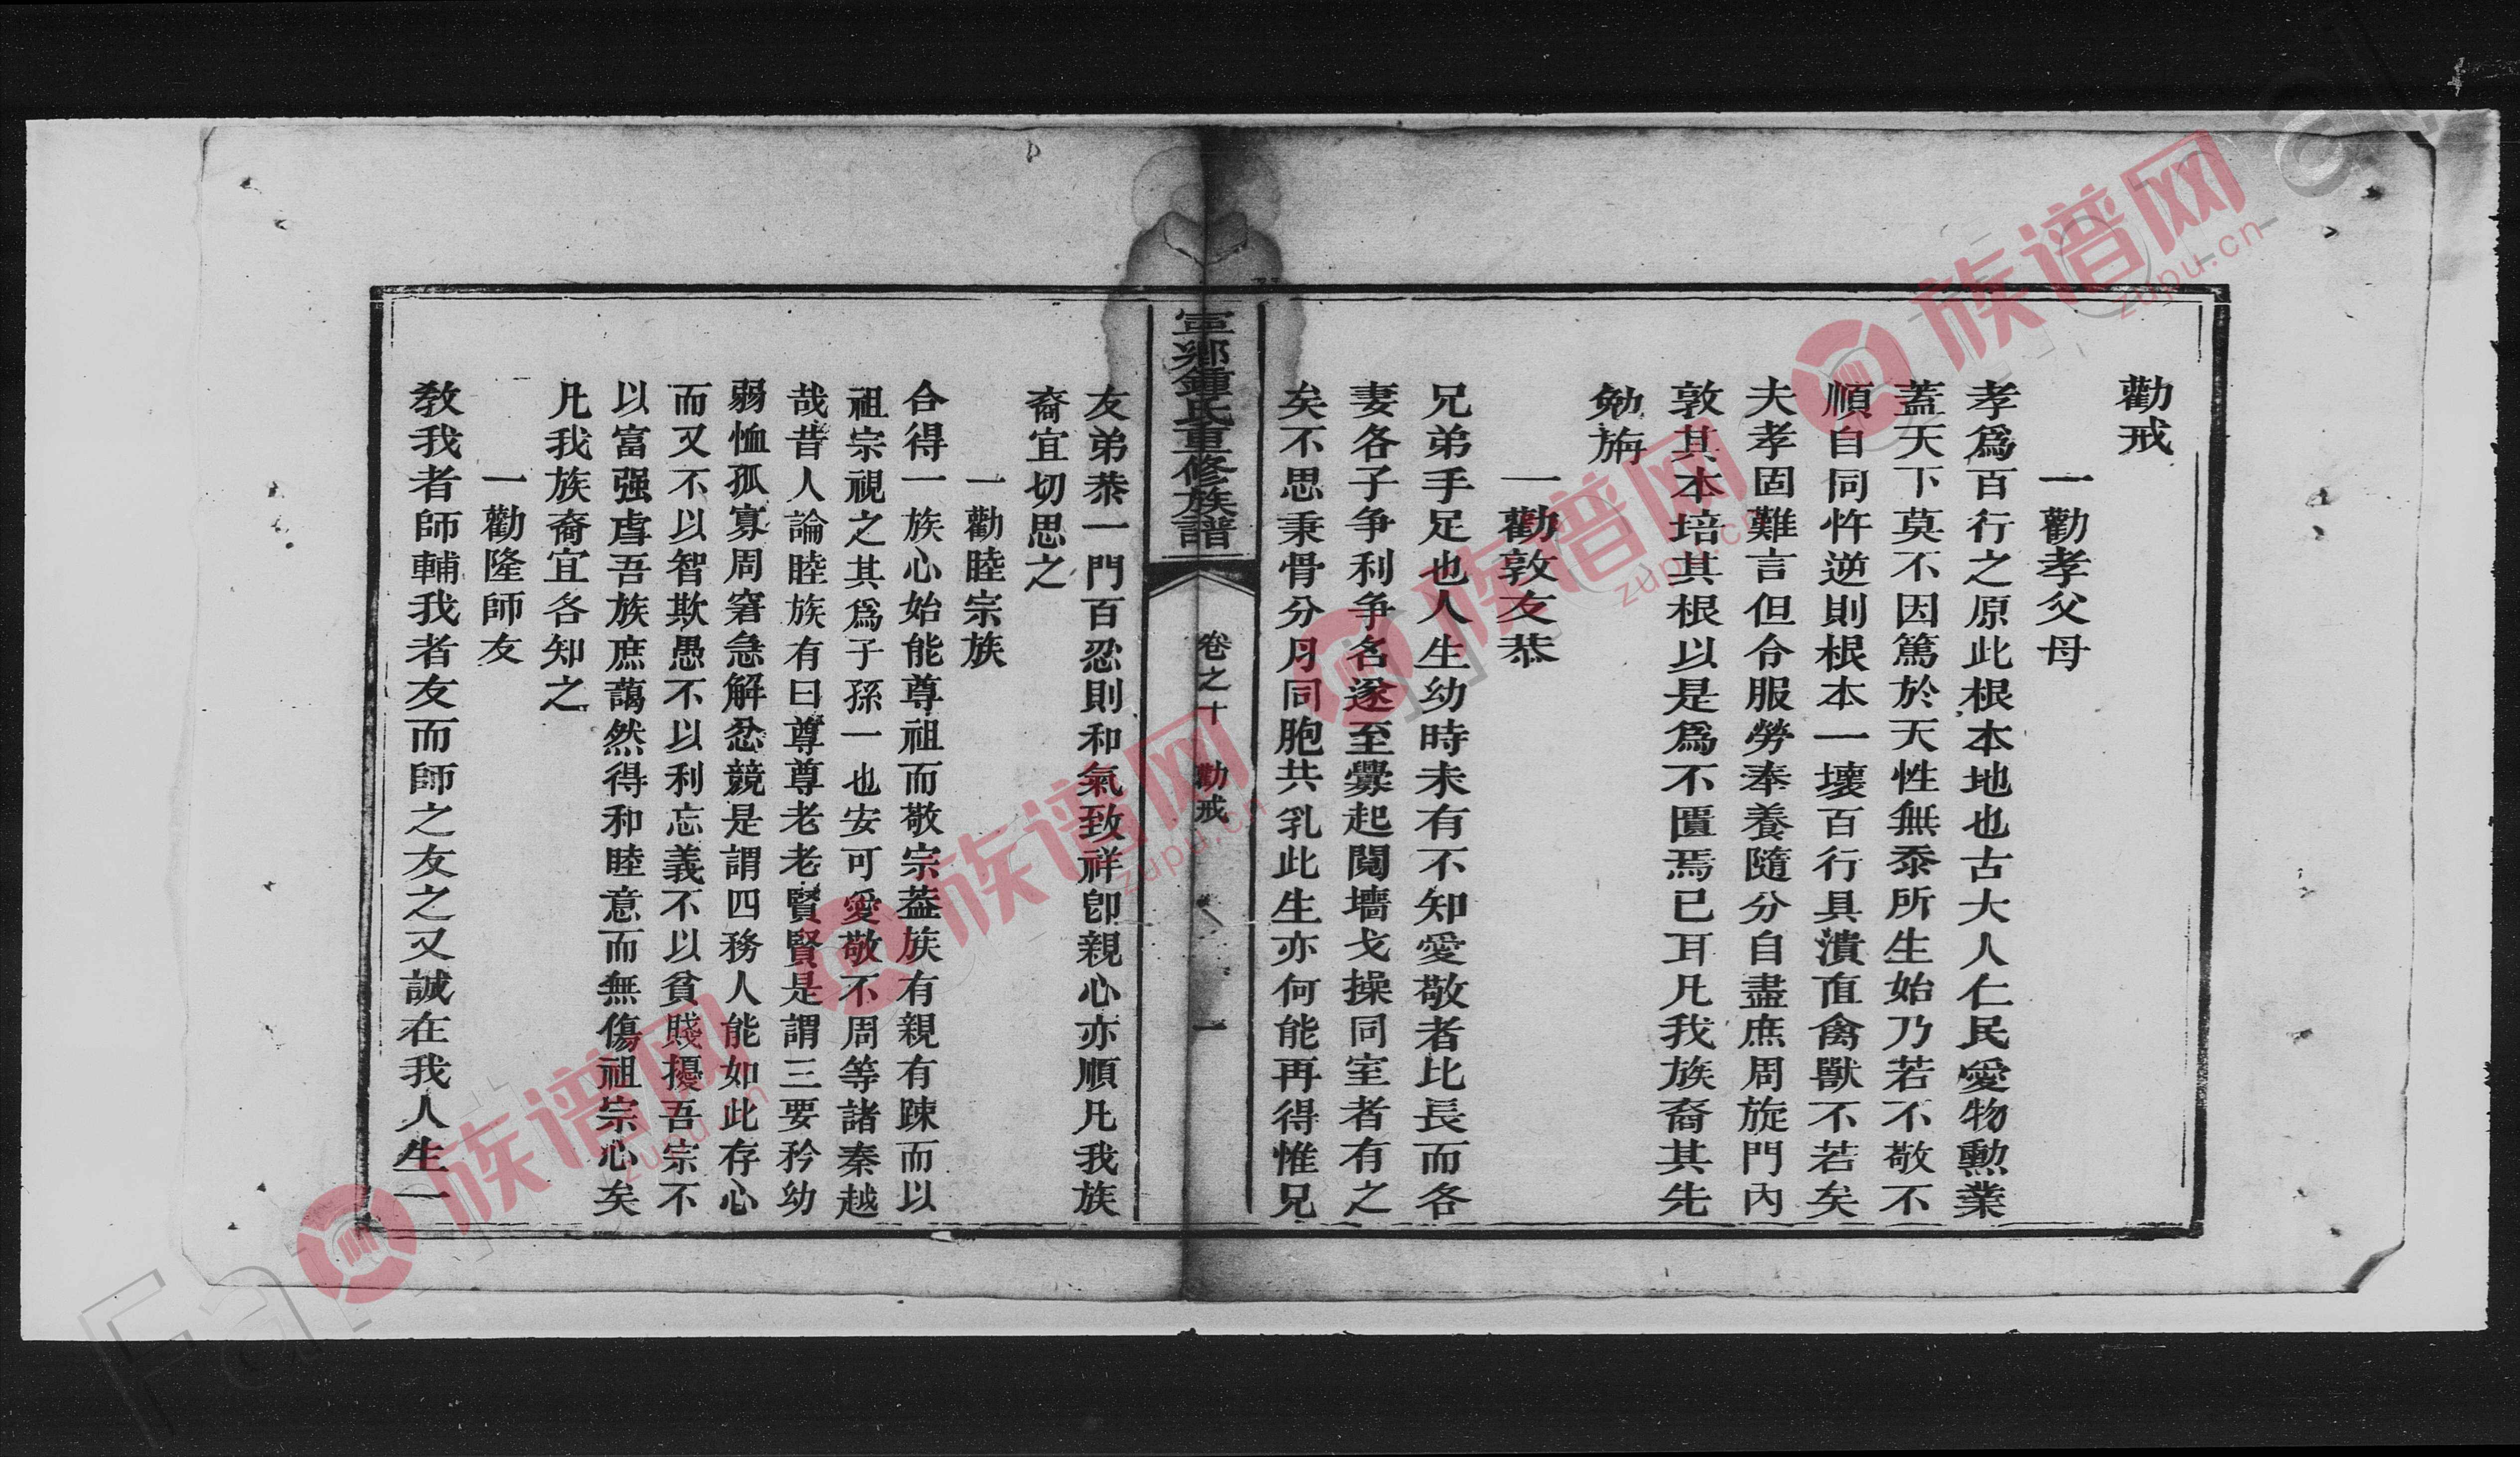 勸戒
一勸孝父母
孝為百行之原此根本地也古大人仁民愛物勲業
蓋天下莫不因篤於天性無忝所生始乃若不敬不
順自同忤逆則根本一壞百行具潰直禽獸不若矣
夫孝固難言但令服勞奉養隨分自盡庶周旋門內
敦其本培其根以是為不匱焉已耳凡我族裔其先
勉旃
一勸敦友恭
兄弟手足也人生幼時未有不知愛敬者比長而各
妻各子争利争名遂至釁起鬩墻戈操同室者有之
矣不思秉骨分月同胞共乳此生亦何能再得惟兄
寧鄉鍾氏重修族譜
卷之十 勸戒 一
友弟恭一門百忍則和氣致祥卽親心亦順凡我族
裔宜切思之
一勸睦宗族
合得一族心始能尊祖而敬宗葢族有親有踈而以
祖宗視之其為子孫一也安可愛敬不周等諸秦越
哉昔人論睦族有曰尊尊老老賢賢是謂三要矜幼
弱恤孤寡周窘急解忿競是謂四務人能如此存心
而又不以智欺愚不以利忘義不以貧賤擾吾宗不
以富强虐吾族庶藹然得和睦意而無傷祖宗心矣
凡我族裔宜各知之
一勸隆師友
敎我者師輔我者友而師之友之又誠在我人生一
族谱网
zupu.cn
族谱网
zupu.cn
族谱网
zupu.cn
族谱网
zupu.cn